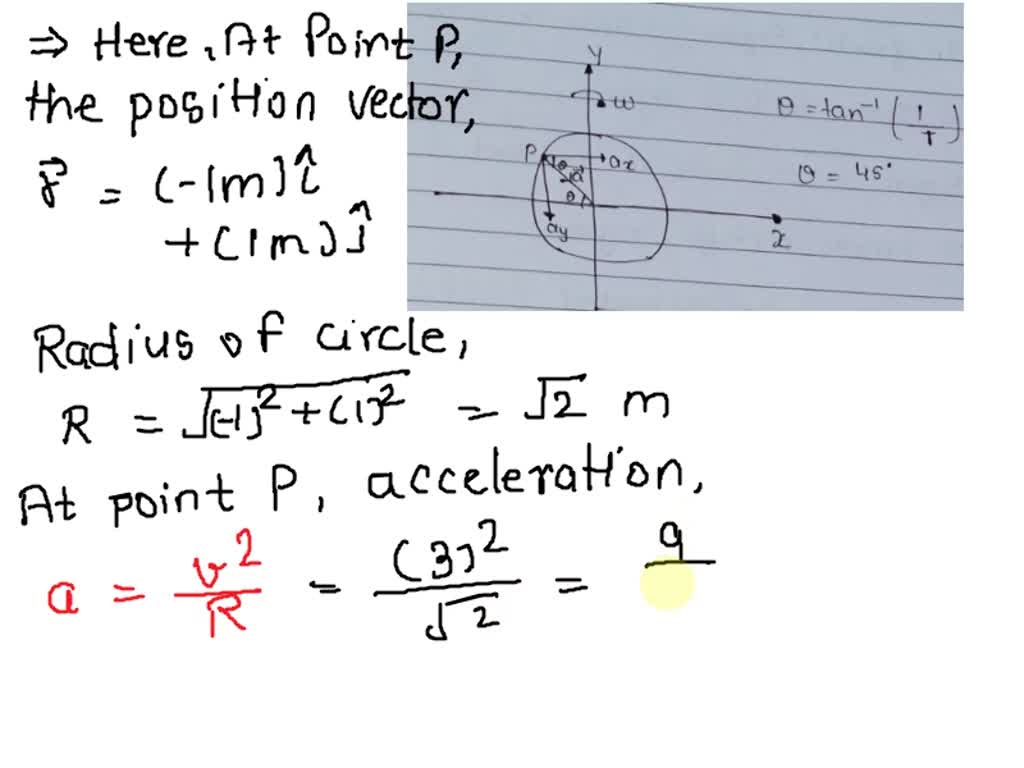 ⇒ Here, At Point P,
the position vector,
r⃗ = (-1m) î
+ (1m) ĵ
y
ω
P
θ
a⃗
ax
θ
ay
x
θ = tan⁻¹ (1/1)
θ = 45°
Radius of circle,
R = √((-1)² + (1)²) = √2 m
At point P, acceleration,
a = v²/R = (3)²/√2 = 9